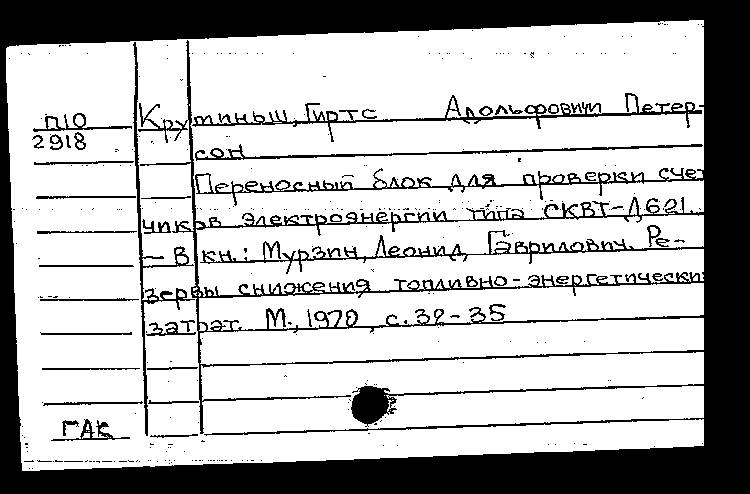 П10 Крутиныш, Гиртс Адольфович Петер-
2918
сон
Переносный блок для проверки счет
чиков электроэнергии типа СКВТ-Д621.
— В кн.: Мурзин, Леонид Гаврилович. Ре-
зервы снижения топливно-энергетически
затрат. М., 1970, с. 32-35
ГАК